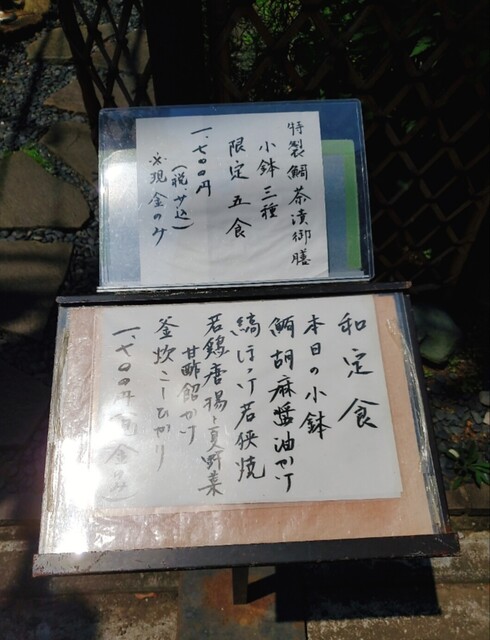 特製鯛茶漬御膳
小鉢三種
限定五食
一、七〇〇円
(税、サ込)
※現金のみ
和定食
本日の小鉢
鯛胡麻醤油かけ
縞ほっけ若狭焼
若鶏唐揚と夏野菜
甘酢餡かけ
釜炊こしひかり
一、七〇〇円(現金のみ)